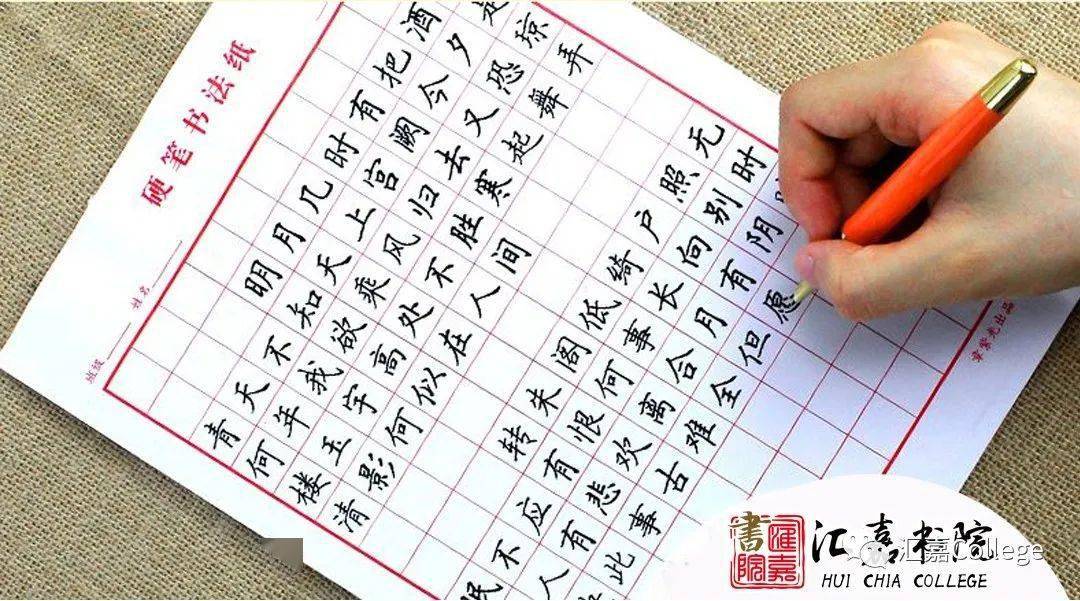 硬笔书法纸
班级
姓名
明月几时有把酒
青天不知天上宫阙今夕
何年我欲乘风归去又恐琼
楼玉宇高处不胜寒起舞弄
清影何似在人间
转朱阁低绮户照无
眠不应有恨何事长向别时
人有悲欢离合月有阴
此事古难全但愿
書院
汇嘉书院
HUI CHIA COLLEGE
汇嘉College